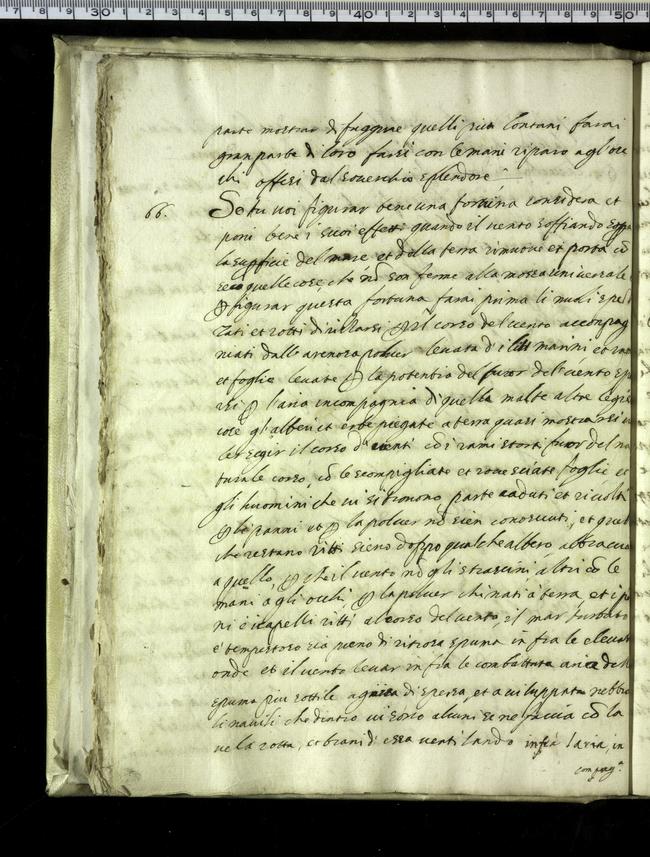 7 8 9 30 1 2 3 4 5 6 7 8 9 40 1 2 3 4 5 6 7 8 9 50
parte mostrar di fuggire quelli più lontani farai
gran parte di loro farsi con le mani riparo a gl'oc
chi offesi dal soverchio splendore
66. Se tu voi figurar bene una fortuna considera et
poni bene i suoi effetti quando il vento soffiando sopra
la supficie del mare et della terra rimove et porta cõ
seco quelle cose, che nõ son ferme alla mossa universale
figurar questa fortuna farai prima li nuvoli spez
zati et rotti
il corso del vento accompag
niati dall'arenosa polver levata d'i liti marini et rami
et foglie levate la potentia del furor del vento spar
si l'aria in compagnia di quella molte altre legie
cose gl'alberi et erbe piegate a terra quasi mostrarsi
seguir il corso d'venti cõ i rami storti fuor del na
turale corso, cõ le scompigliate et rovesciate foglie et
gli huomini che vi si trovono parte caduti et rivolti
li panni et la polver nõ sien conosciuti, et quelli
che restano ritti sieno doppo qualche albero abbracciati
a quello, che il vento nõ gli strascini altri cõ le
mani a gli occhi la polver chinati a terra, et i pan
ni e i capelli ritti al corso del vento, il mar turbato
e tempestoso sia pieno di ritrosa spuma in fra le elevate
onde et il vento levar in fra la combattuta aria della
spuma piu sottile a guisa di spessa, et aviluppata nebbia
li navili che dentro vi sono alcuni se ne faccia cõ la
vela rotta, et brani d'essa ventilando infra l'aria, in
compag.ª